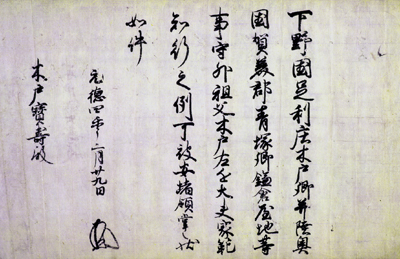 下野國足利庄木戸郷并陸奥
國賀美郡青塚郷鎌倉屋地等
事守祖父木戸左近大夫家範
知行之例可被安堵領掌状
如件
元徳四年二月廿九日
木戸寳壽殿